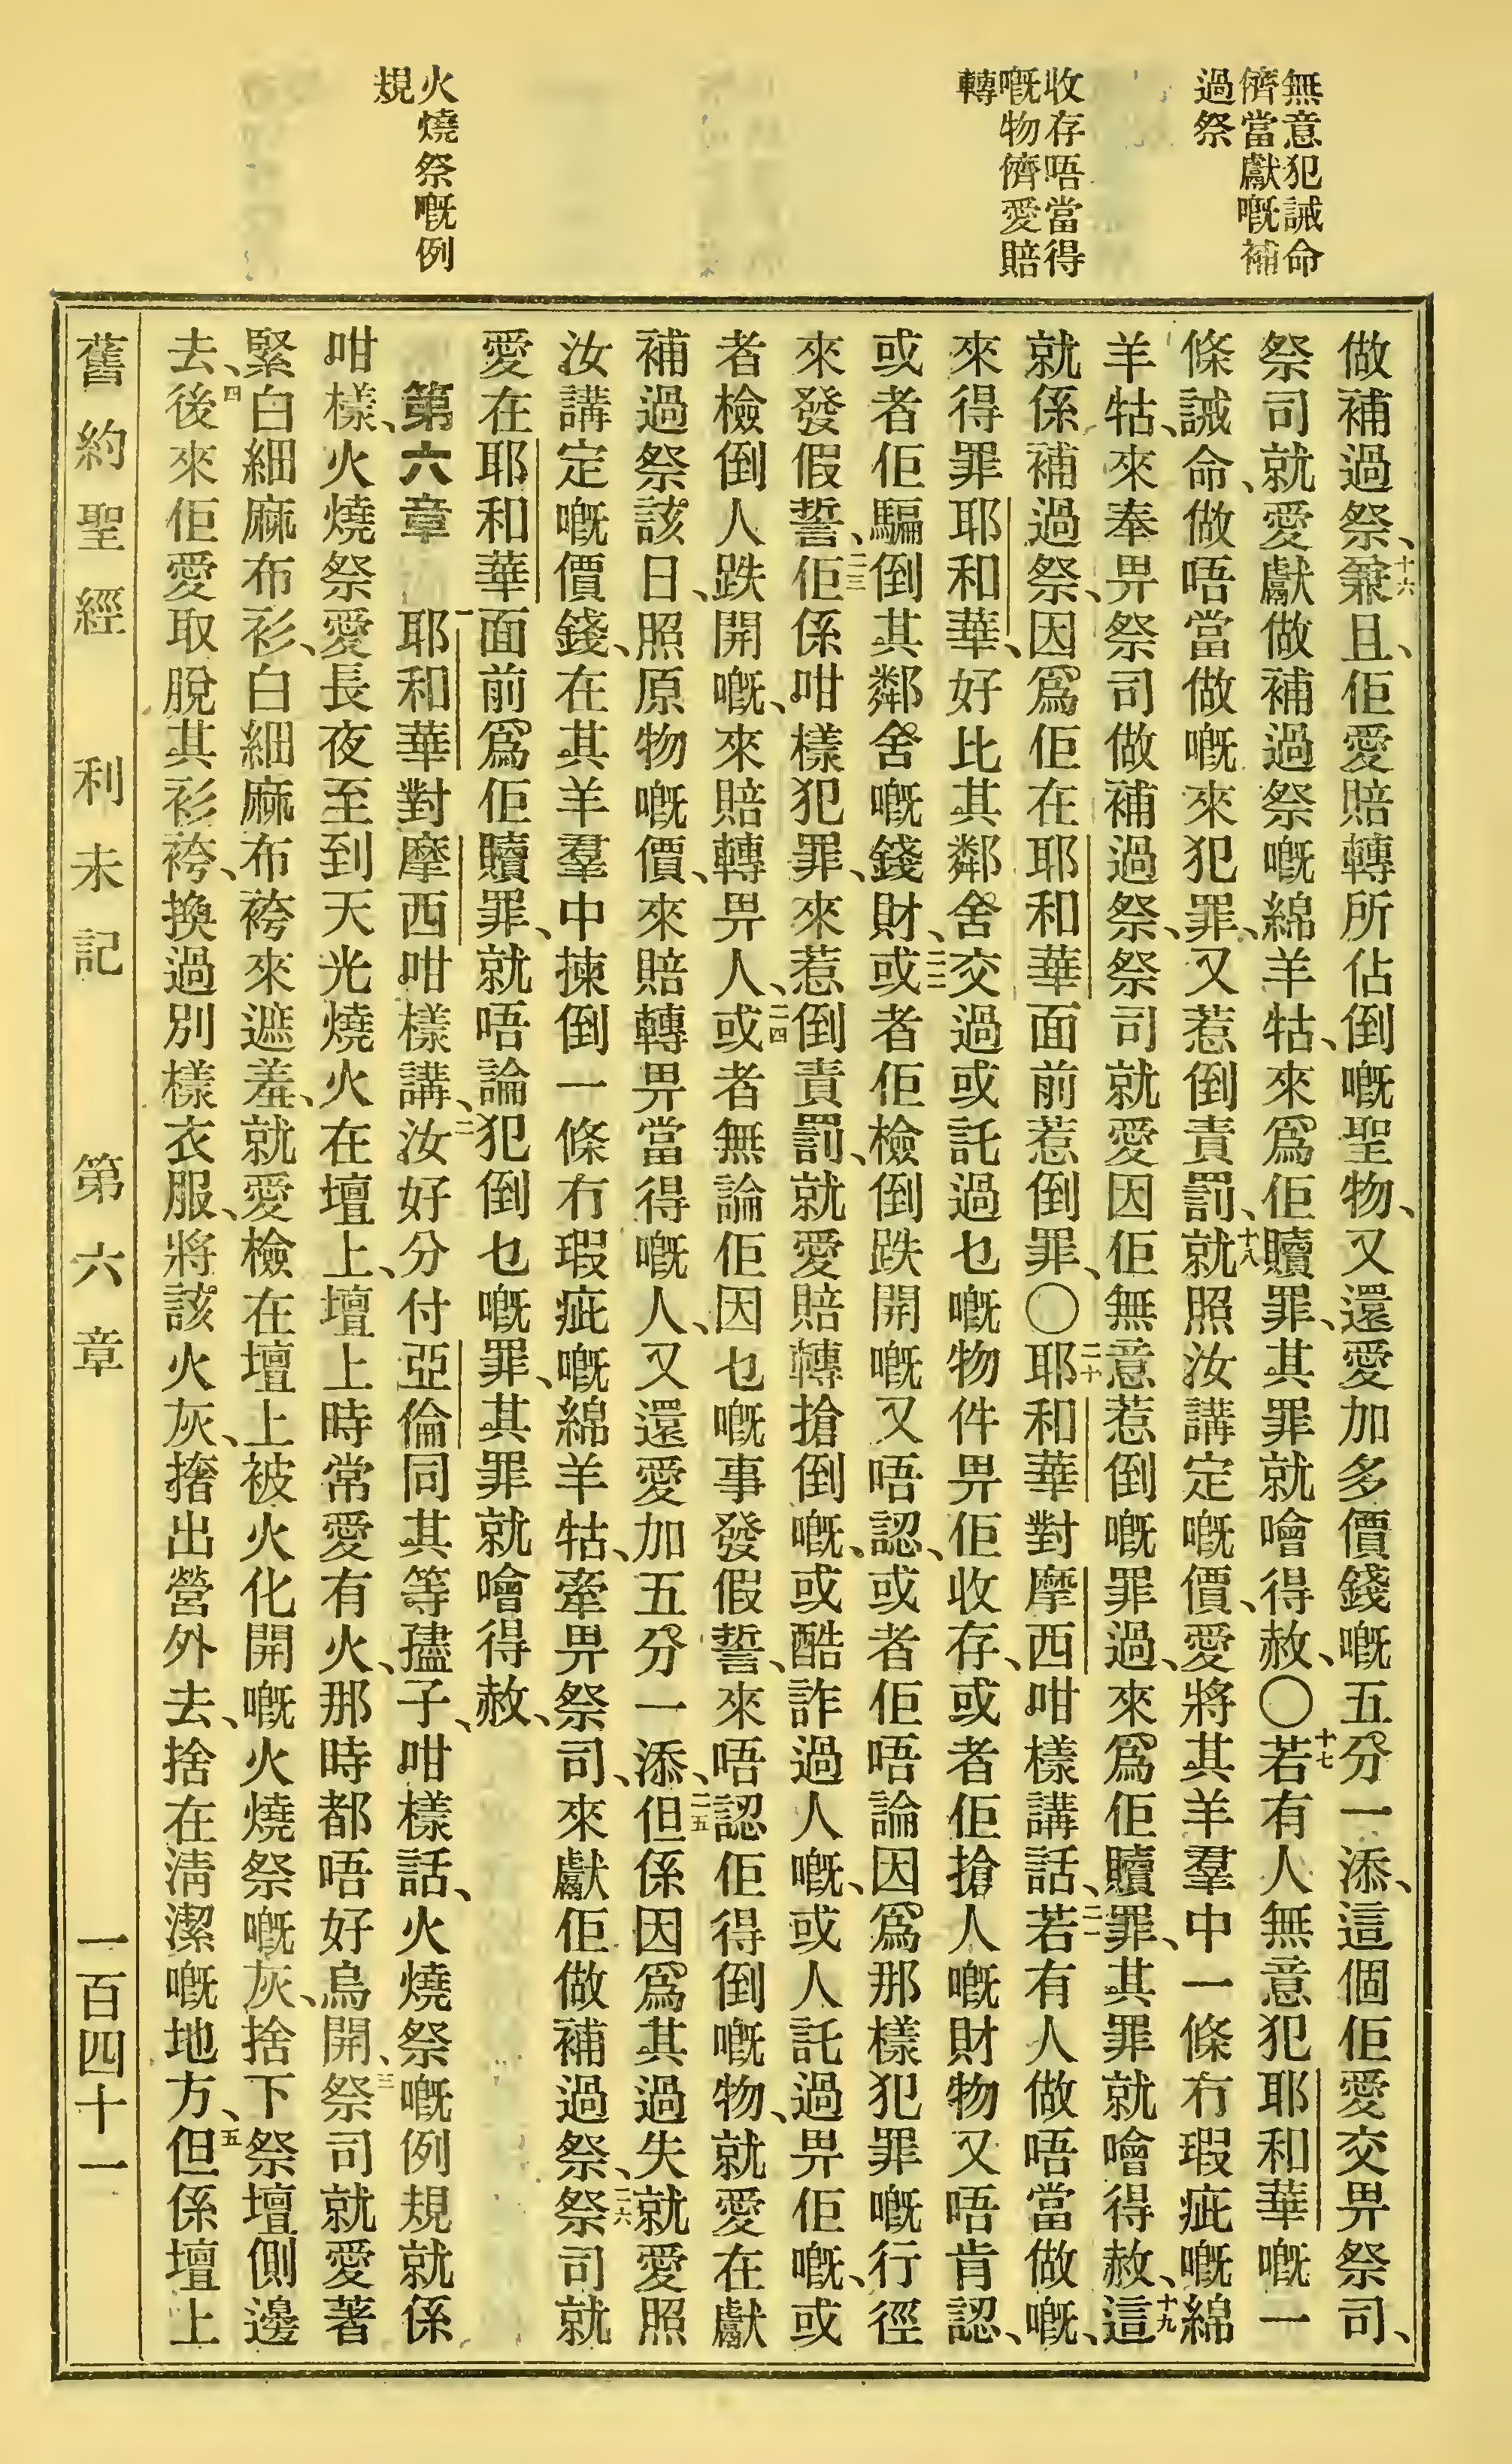 無意犯誡命
儕當獻嘅補
過祭
收存唔當得
嘅物儕愛賠
轉
火燒祭嘅例
規
做補過祭、十六兼且、佢愛賠轉所佔倒嘅聖物、又還愛加多價錢嘅五分一添、這個佢愛交畀祭司、
祭司就愛獻做補過祭嘅綿羊牯、來爲佢贖罪、其罪就噲得赦、〇十七若有人無意犯耶和華嘅一
條誡命、做唔當做嘅來犯罪、又惹倒責罰、十八就照汝講定嘅價、愛將其羊羣中一條冇瑕疵嘅綿
羊牯、來奉畀祭司做補過祭、祭司就愛因佢無意惹倒嘅罪過、來爲佢贖罪、其罪就噲得赦、十九這
就係補過祭、因爲佢在耶和華面前惹倒罪、〇二十耶和華對摩西咁樣講話、二一若有人做唔當做嘅、
來得罪耶和華、好比其鄰舍交過或託過乜嘅物件畀佢收存、或者佢搶人嘅財物又唔肯認、
或者佢騙倒其鄰舍嘅錢財、二二或者佢檢倒跌開嘅又唔認、或者佢唔論因爲那樣犯罪嘅行徑
來發假誓、二三佢係咁樣犯罪、來惹倒責罰、就愛賠轉搶倒嘅、或酷詐過人嘅、或人託過畀佢嘅、或
者檢倒人跌開嘅、來賠轉畀人、二四或者無論佢因乜嘅事發假誓、來唔認佢得倒嘅物、就愛在獻
補過祭該日、照原物嘅價、來賠轉畀當得嘅人、又還愛加五分一添、二五但係因爲其過失就愛照
汝講定嘅價錢、在其羊羣中揀倒一條冇瑕疵嘅綿羊牯、牽畀祭司、來獻佢做補過祭、二六祭司就
愛在耶和華面前爲佢贖罪、就唔論犯倒乜嘅罪、其罪就噲得赦、
第六章 一耶和華對摩西咁樣講、二汝好分付亞倫同其等孻子、咁樣話、火燒祭嘅例規就係
咁樣、火燒祭愛長夜至到天光燒火在壇上、壇上時常愛有火、那時都唔好烏開、三祭司就愛著
緊白細麻布衫、白細麻布袴來遮羞、就愛檢在壇上被火化開嘅火燒祭嘅灰、捨下祭壇側邊
去、四後來佢愛取脫其衫袴、換過別樣衣服、將該火灰、撦出營外去、捨在淸潔嘅地方、五但係壇上
舊約聖經 利未記 第六章 一百四十一